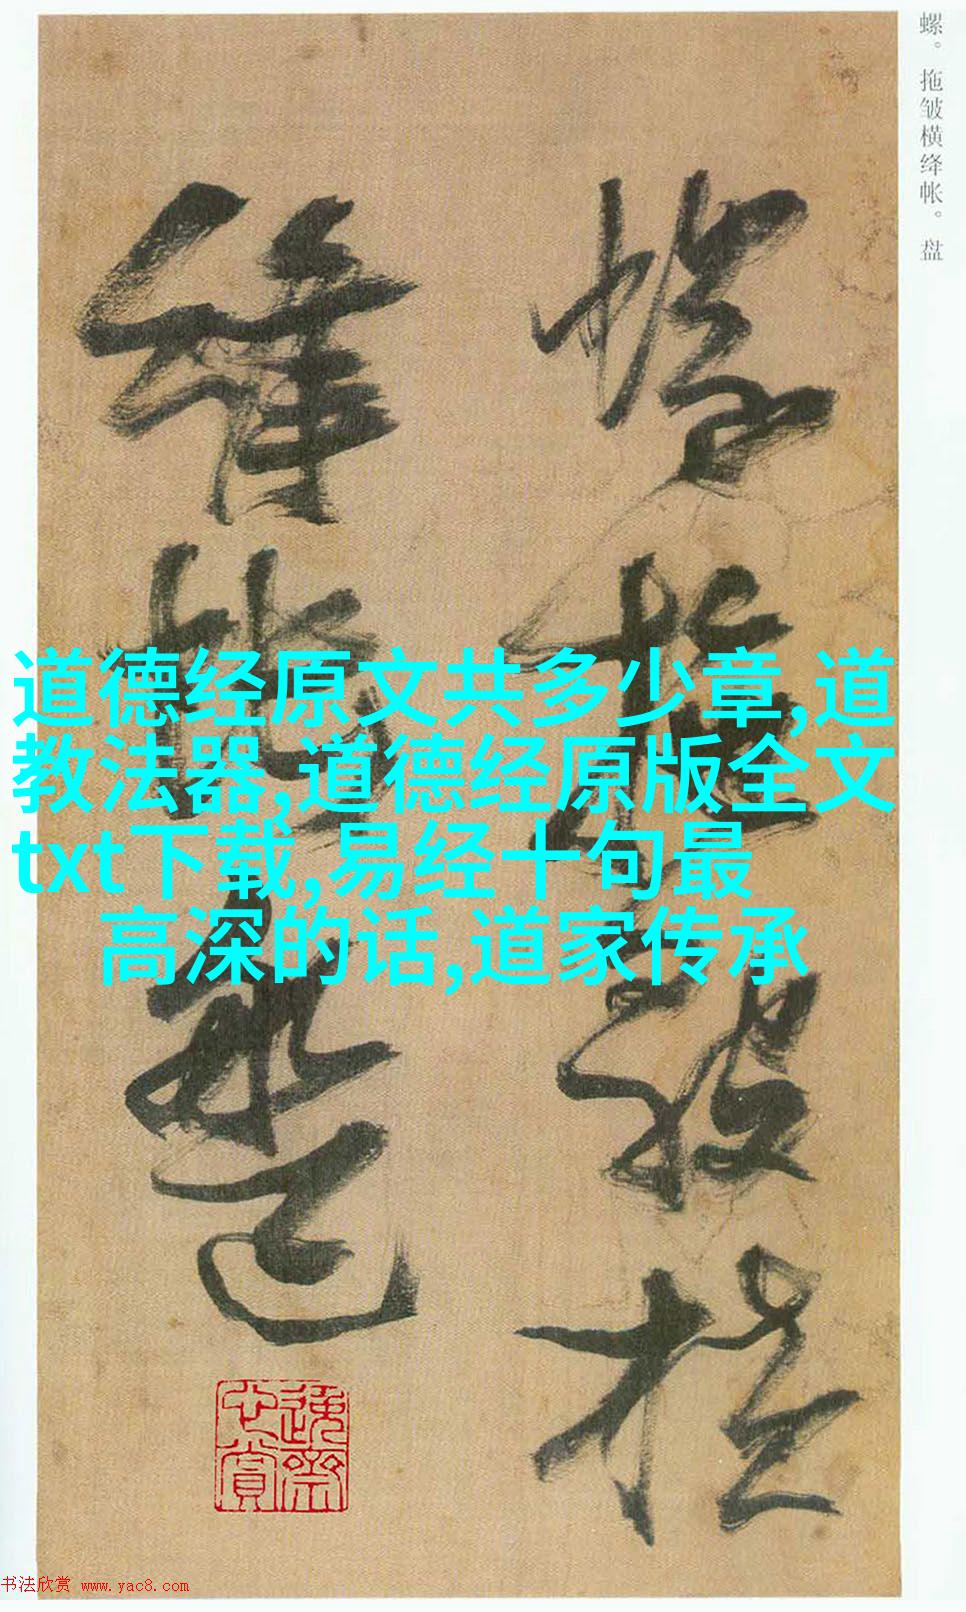 螺。拖皱横绛帐。盘
螺拖皺橫
絳帳盤
道德经原文共多少章,道
教法器,道德经原版全文
txt下载,易经十句最
高深的话,道家传承
书法欣赏 www.yac8.com